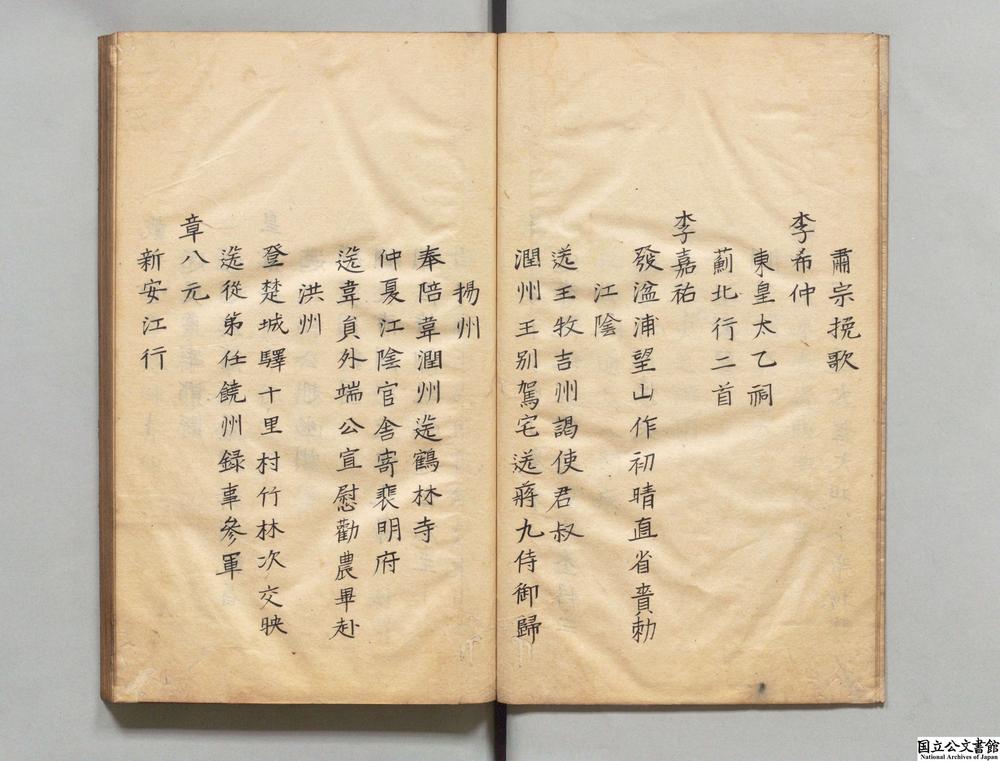 肅宗挽歌
李希仲
東皇太乙祠
薊北行二首
李嘉祐
發湓浦望山作初晴直省賫勅
江陰
送王牧吉州謁使君叔
潤州王别駕宅送蔣九侍御歸
揚州
奉陪韋潤州逰鶴林寺
仲夏江陰官舍寄裴明府
送韋貟外端公宣慰勸農畢赴
洪州
登楚城驛十里村竹林次交映
送從弟任饒州録事參軍
章八元
新安江行
国立公文書館
National Archives of Japan